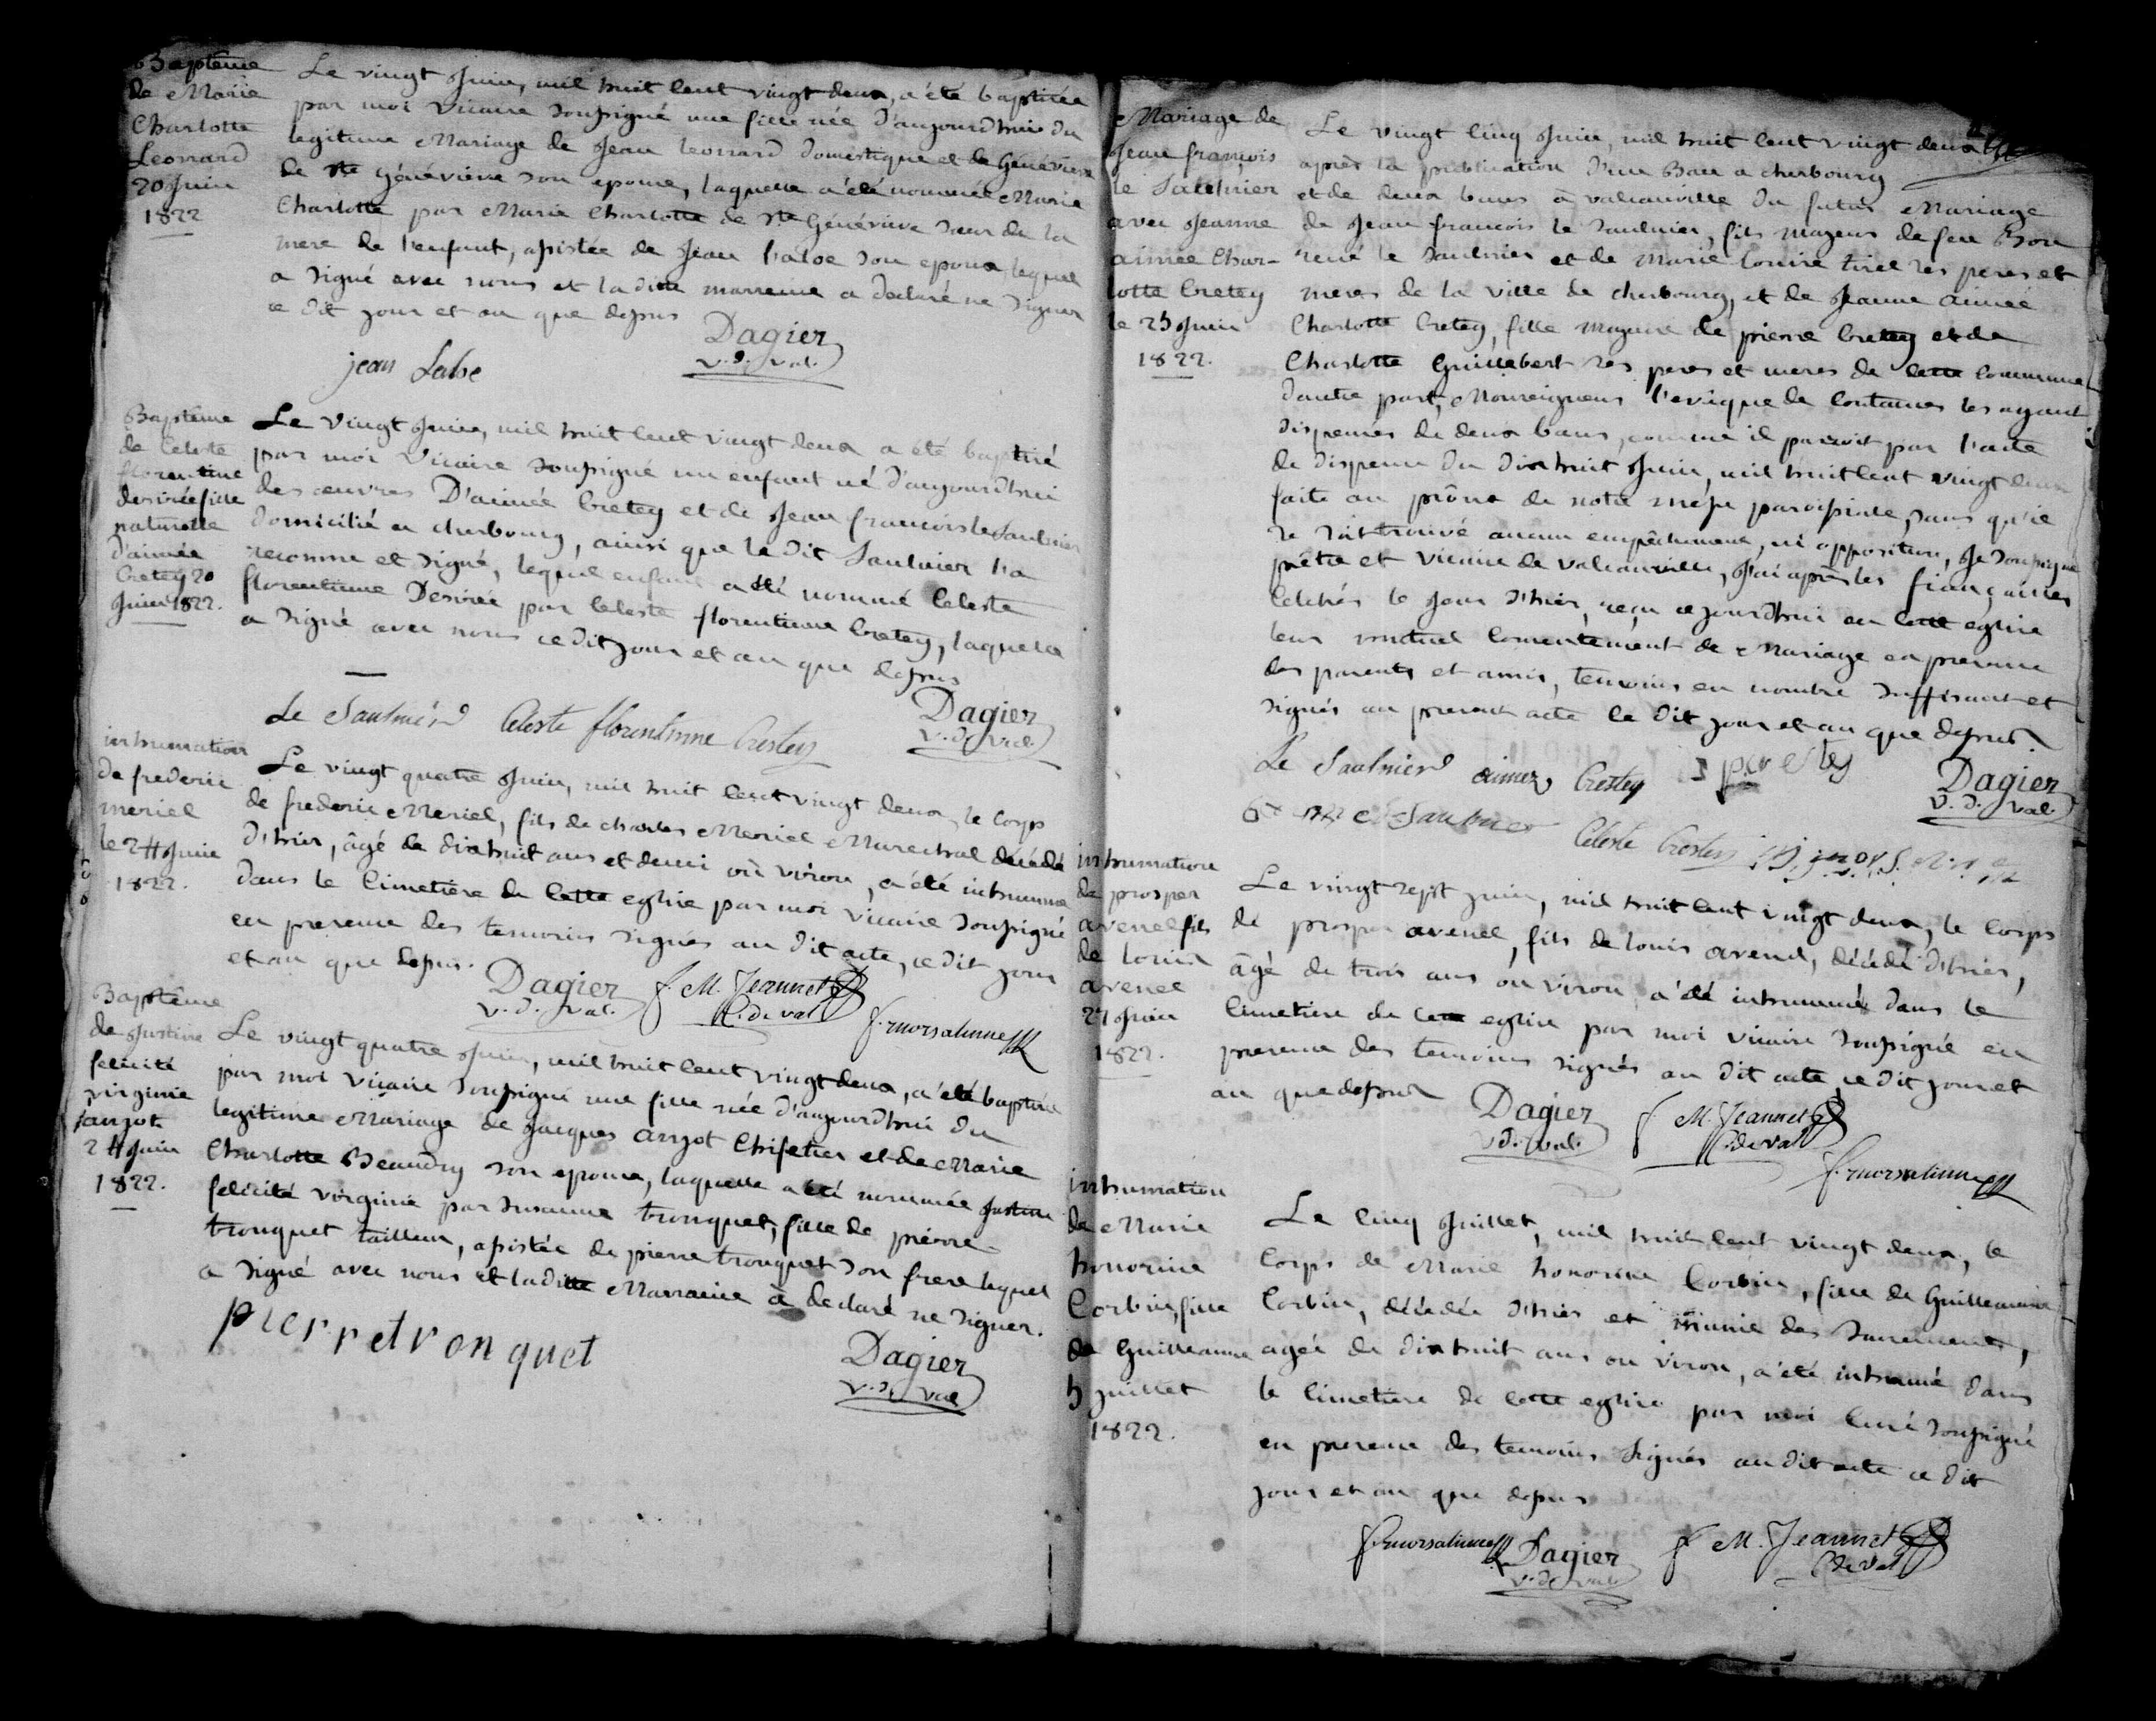 Baptême
de Marie
Charlotte
Leonard
20 Juin
1822
Le vingt Juin, mil huit cent vingt deux, a été baptisée
par moi Vicaire soussigné une fille née d'aujourdhui du
legitime Mariage de Jean leonard domestique et de Généviève
de ste Généviève son epouse, laquelle a été nommée Marie
Charlotte par Marie Charlotte de ste Généviève sœur de la
mere de l'enfant, assistée de Jean l'aloe son epoux lequel
a signé avec nous et la dite marreine a declaré ne signer
ce dit jour et an que dessus
Dagier
v. d. val.
jean Laloe
Baptême
de Celeste
florentine
desirée fille
naturelle
d'aimée
Cretey 20
Juin 1822.
Le Vingt Juin, mil huit cent vingt deux a été baptisé
par moi Vicaire soussigné un enfant né d'aujourdhui
des œuvres D'aimée Cretey et de Jean francois le Saulnier
domicilié a cherbourg, ainsi que le dit Saulnier l'a
reconnu et signé, lequel enfant a été nommé Celeste
florentinne Desirée par Celeste florentinne Cretey, laquelle
a signé avec nous ce dit jour et an que dessus
Le Saulnier Celeste florentinne Crestey
Dagier
v. d. val.
inhumation
de frederic
meriel
le 24 Juin
1822.
Le vingt quatre Juin, mil huit cent vingt deux, le corps
de frederic Meriel, fils de charles Meriel Marechal décédé
d'hier, âgé de dixhuit ans et demi ou viron, a été inhumé
dans le Cimetière de cette eglise par moi vicaire soussigné
en presence des temoins signés au dit acte, ce dit jour
et an que dessus.
Dagier
v. d. val.
f M. Jeannet
C. de val
Baptême
de Justine
felicité
virginie
anjot
24 Juin
1822.
Le vingt quatre Juin, mil huit cent vingt deux, a été baptisée
par moi vicaire soussigné une fille née d'aujourdhui du
legitime Mariage de Jacques anjot et de Marie
Charlotte Beaudry son epouse, laquelle a été nommée Justine
felicité virginie par Susanne tronquet, fille de pierre
tronquet tailleur, assistée de pierre tronquet son frere lequel
a signé avec nous et la ditte Marraine a declaré ne signer.
pierre tronquet
Dagier
v. d. val
Mariage de
Jean françois
le Saulnier
avec Jeanne
aimée Char-
lotte Cretey
le 25 Juin
1822.
Le vingt Cinq Juin, mil huit cent vingt deux
après la publication d'un Ban a cherbourg
et de deux bans à valcanville du futur Mariage
de Jean francois le saulnier, fils majeur de feu Bon
rené le Saulnier et de Marie louise tirel ses peres et
meres de la ville de cherbourg, et de Jeanne aimée
Charlotte Cretey, fille majeure de pierre Cretey et de
Charlotte Guillebert ses peres et meres de cette commune
dautre part, Monseigneur l'evêque de Coutances les ayant
dispensés de deux bans, comme il paroit par l'acte
de dispense du dixhuit Juin, mil huit cent vingt deux
faite au prône de notre messe paroissiale, sans qu'il
se soit trouvé aucun empêchement, ni opposition, Je soussigné
prêtre et vicaire de valcanville, J'ai après les fiançailles
celebrés le jour d'hier, reçu cejourdhui en cette eglise
leur mutuel consentement de Mariage en presence
des parents et amis, temoins en nombre suffisant et
signés au present acte le dit jour et an que dessus.
Le Saulnier aimée Crestey
Dagier
v. d. val.
Saulnier Celeste Crestey
inhumation
de prosper
avenel fils
de louis
avenel
27 Juin
1822.
Le vingt sept juin, mil huit cent vingt deux, le corps
de prosper avenel, fils de louis avenel, décédé d'hier,
âgé de trois ans ou viron a été inhummé dans le
Cimetière de cette eglise par moi vicaire soussigné en
presence des temoins signés au dit acte, ce dit jour et
an que dessus
Dagier
v. d. val.
f M. Jeannet
C. de val
inhumation
de Marie
honorine
Corbin, fille
de Guilleaume
5 juillet
1822.
Le Cinq Juillet, mil huit cent vingt deux, le
Corps de Marie honorine Corbin, fille de Guilleaume
Corbin, décédée d'hier et munie des Sacrements,
agée de dixhuit ans ou viron, a été inhumé dans
le Cimetière de cette eglise par moi Curé soussigné
en presence des temoins signés au dit acte ce dit
jour et an que dessus
Dagier
v. d. val.
f M. Jeannet
C de val